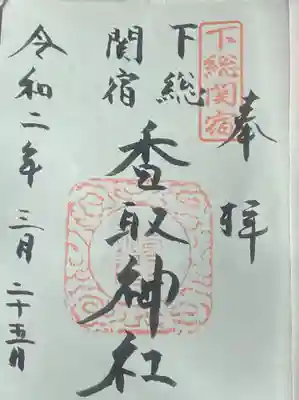 奉拝
下総関宿
下総
関宿
香取神社
令和二年三月二十五月